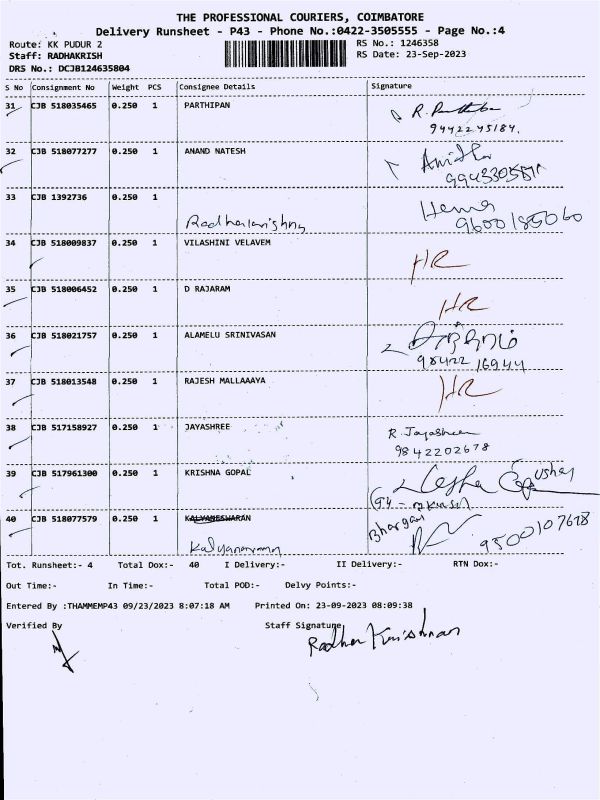 THE PROFESSIONAL COURIERS, COIMBATORE
Delivery Runsheet - P43 - Phone No.:0422-3505555 - Page No.:4
Route: KK PUDUR 2
RS No.: 1246358
Staff: RADHAKRISH
RS Date: 23-Sep-2023
DRS No.: DCJB124635804
S No Consignment No Weight PCS Consignee Details Signature
31 CJB 518035465 0.250 1 PARTHIPAN
9442245184.
32 CJB 518077277 0.250 1 ANAND NATESH
33 CJB 1392736 0.250 1 Hema
Radhakrishnan 9600185060
34 CJB 518009837 0.250 1 VILASHINI VELAVEM HR
35 CJB 518006452 0.250 1 D RAJARAM HR
36 CJB 518021757 0.250 1 ALAMELU SRINIVASAN
98422 16944
37 CJB 518013548 0.250 1 RAJESH MALLAAAYA HR
38 CJB 517158927 0.250 1 JAYASHREE R. Jayashree
9842202678
39 CJB 517961300 0.250 1 KRISHNA GOPAL
40 CJB 518077579 0.250 1 KALYANESHARAN 9500107678
Tot. Runsheet:- 4 Total Dox:- 40 I Delivery:- II Delivery:- RTN Dox:-
Out Time:- In Time:- Total POD:- Delvy Points:-
Entered By :THAMMEMP43 09/23/2023 8:07:18 AM Printed On: 23-09-2023 08:09:38
Verified By Staff Signature
Radha Krishnan